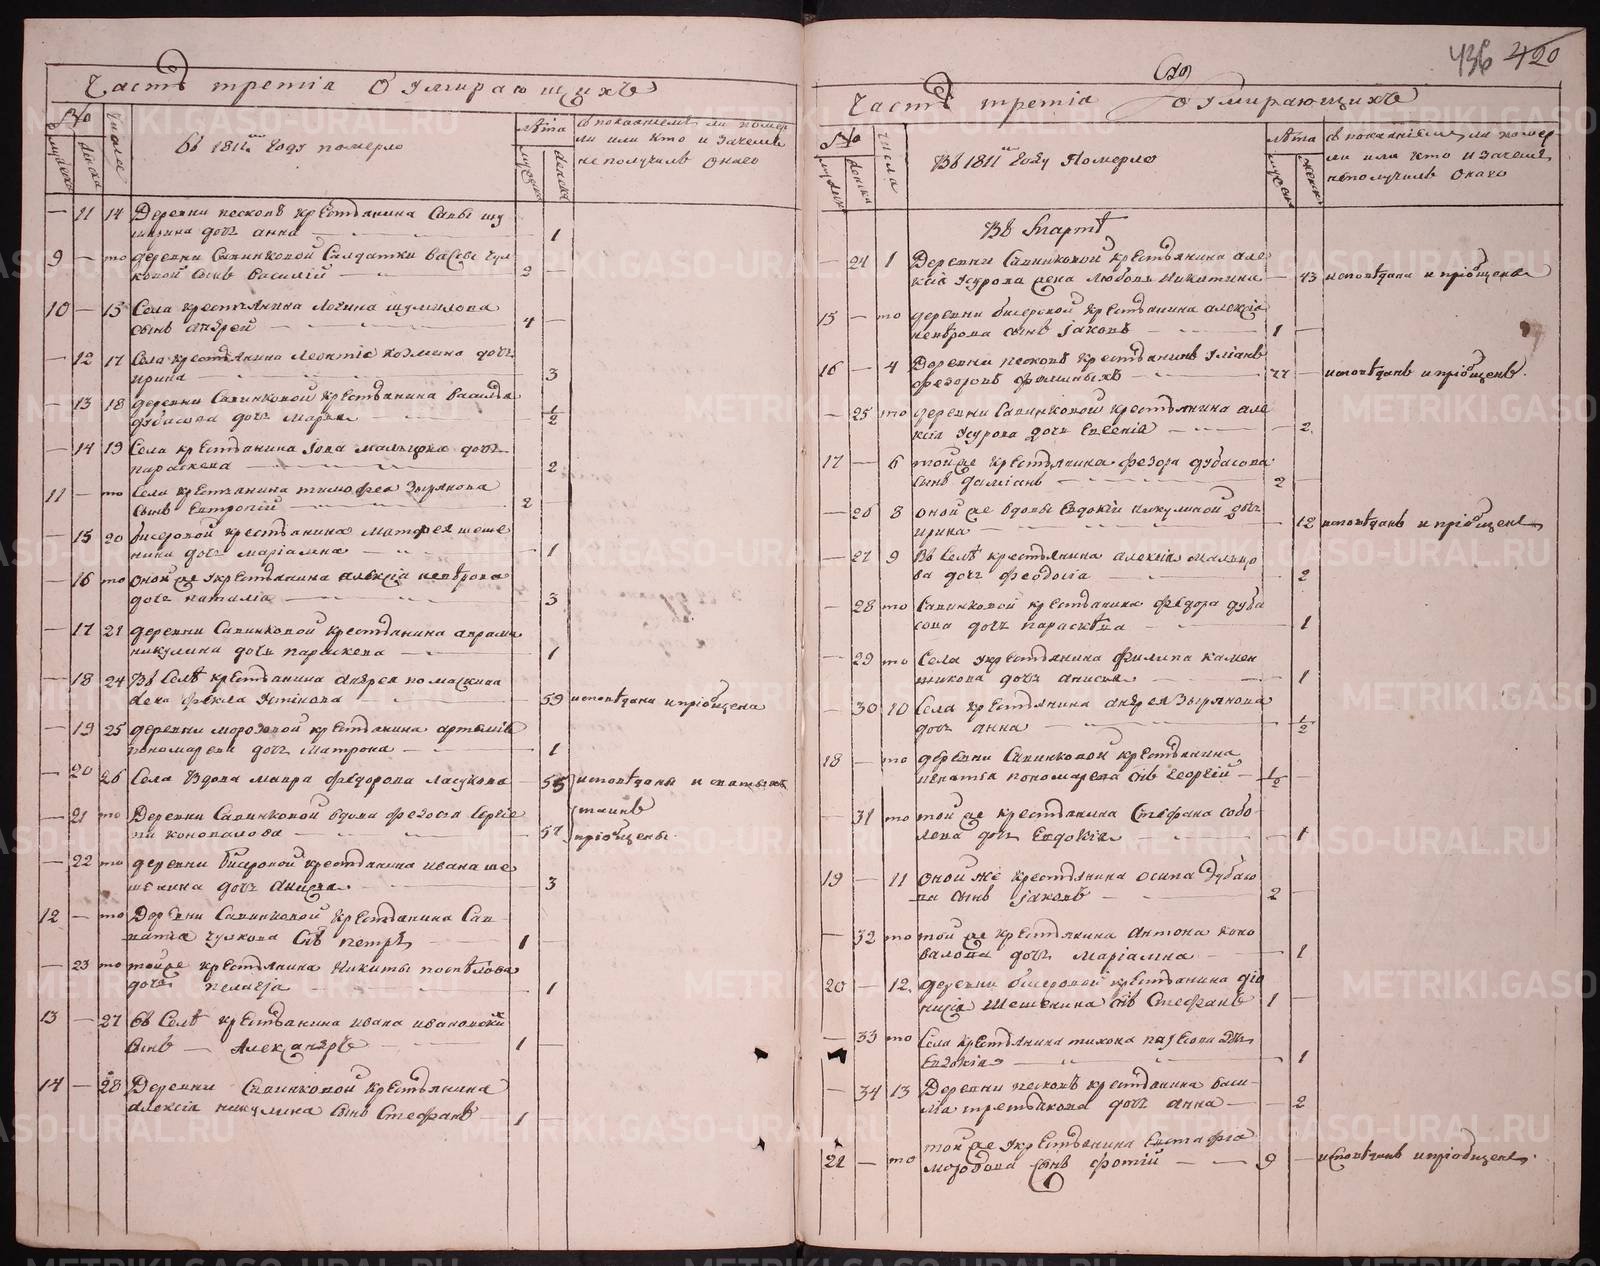 436 420
Часть третіа О Умирающихъ
№ числа
мужеска женска
Въ 1811мъ Году померло
лѣта
мужеска женска
с покаяніемъ ли помер
ли или кто и зачемъ
не получилъ онаго
— 11 14 Деревни песковъ крестьянина Савы шу
дочь анна — 1
9 — то деревни Савинковой Салдатки
сынъ василій — 2 —
10 — 15 Села крестьянина Логина шумилова
сынъ андрей — 4 —
— 12 17 Села крестьянина Леонтіа козмина дочь
ирина — 3
— 13 18 деревни Савинковой крестьянина василья
дубасова дочь марья — 1/2
— 14 19 Села крестьянина Іова мальцова дочь
параскева — 2
11 — то Села крестьянина тимофеа Зырянова
сынъ Евтропій — 2 —
— 15 20 бисеровой крестьянина матфея шеше
нина дочь маріамна — 1
— 16 то оной же крестьянина алексіа неверова
дочь наталіа — 3
— 17 21 деревни Савинковой крестьянина
никулина дочь параскева — 1
— 18 24 Въ Селѣ крестьянина андрея
жена фекла Устинова — 59 исповѣдана и пріобщена
— 19 25 деревни морозовой крестьянина артеміа
пономарева дочь матрона — 1
— 20 26 Села Вдова мавра федорова ласукова — 55 исповѣданы и святыхъ
— 21 то Деревни Савинковой вдова федосья Сергіе
ва коновалова — 57 таинъ
пріобщены
— 22 то деревни бисеровой крестьянина ивана ше
шенина дочь анисья — 3
12 — то Деревни Савинковой крестьянина Сав
ватіа чулкова Сынъ петръ — 1 —
— 23 то той же крестьянина Никиты поспѣлова
дочь пелагіа — 1
13 — 27 въ Селѣ крестьянина ивана
сынъ — Александръ — 1 —
14 — 28 Деревни Савинковой крестьянина
алексіа никулина сынъ Стефанъ — 1 —
Часть третіа О Умирающихъ
№ числа
мужеска женска
Въ 1811мъ Году Померло
лѣта
мужеска женска
с покаяніемъ ли помер
ли или кто и зачемъ
не получилъ онаго
Въ Мартѣ
— 24 1 Деревни Савинковой крестьянина але
ксіа Жена Любовь Никитина — 43 исповѣдана и пріобщена
15 — то деревни бисеровой крестьянина алексіа
неверова сынъ Іаковъ — 1 —
16 — 4 Деревни песковъ крестьянинъ Уліанъ
федоровъ — 77 — исповѣданъ и пріобщенъ.
— 25 то деревни Савинковой крестьянина але
ксіа дочь Евгенія — 2
17 — 6 той же крестьянина федора дубасова
сынъ даміанъ — 2 —
— 26 8 оной же вдовы Евдокіи никулиной дочь
ирина — 12 исповѣдана и пріобщена
— 27 9 Въ Селѣ крестьянина алексіа мальцо
ва дочь феодосіа — 2
— 28 то Савинковой крестьянина федора дуба
сова дочь параскева — 1
— 29 то Села крестьянина филипа камен
щикова дочь анисья — 1
— 30 10 Села крестьянина андрея Зырянова
дочь анна — 1/2
18 — то деревни Савинковой крестьянина
игнатья пономарева Сынъ Георгій — 1/2 —
— 31 то той же крестьянина Стефана собо
лева дочь Евдокіа — 1
19 — 11 оной же крестьянина осипа Дубасо
ва сынъ Іаковъ — 2 —
— 32 то той же крестьянина Антона коно
валова дочь маріамна — 1
20 — 12 деревни бисеровой крестьянина Діо
нисіа Шешенина Сынъ Стефанъ — 1 —
— 33 то Села крестьянина тихона дочь
Евдокіа — 1
— 34 13 Деревни песковъ крестьянина васи
льа третьякова дочь анна — 2
21 — то той же крестьянина Евстафіа
сынъ фотій — 9 — исповѣданъ и пріобщенъ.